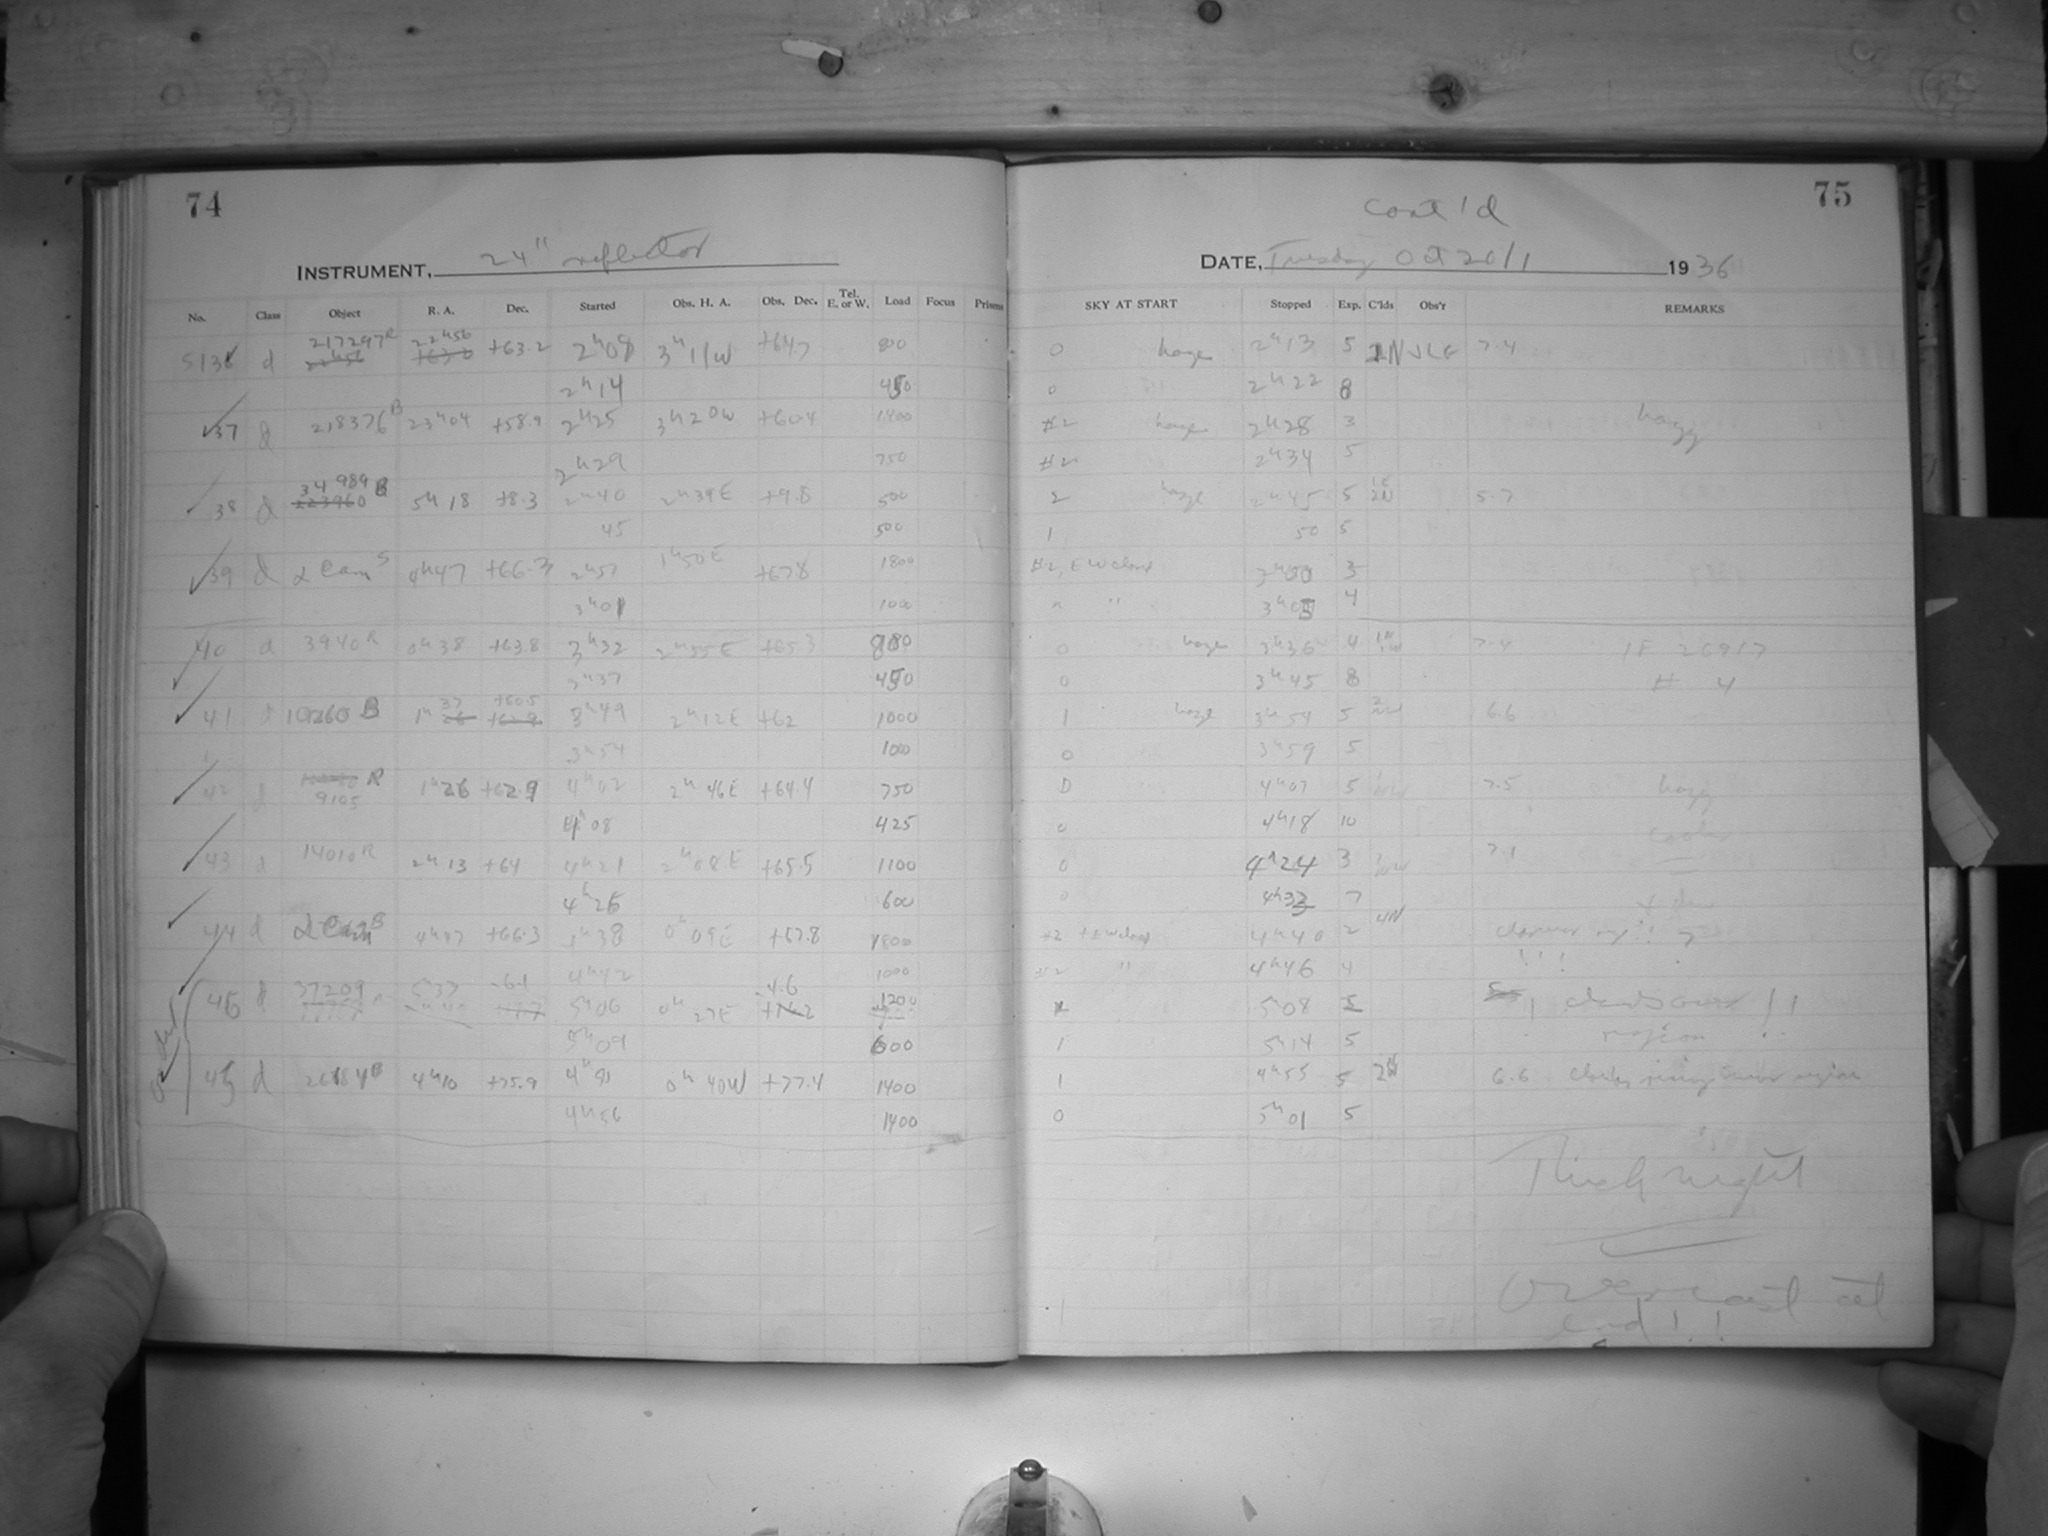 74
INSTRUMENT, 24" reflector
No. Class Object R. A. Dec. Started Obs. H. A. Obs. Dec. Tel. E. or W. Load Focus Prisms
5136 d 217297R 22h56 +63.2 2h08 3h11W +64.7 800
2h14 450
37 d 218376B 23h04 +58.9 2h25 3h20W +60.4 1400
2h29 750
38 d 34989B 5h18 +8.3 2h40 2h39E +9.8 500
45 500
39 d α Cam S 4h47 +66.3 2h57 1h50E +67.8 1800
3h01 1000
40 d 3940R 0h38 +63.8 3h32 2h35E +65.3 800
3h37 450
41 d 10260B 1h 37 +60.5 3h49 2h12E +62 1000
3h54 1000
42 d 9105 R 1h26 +62.9 4h02 2h46E +64.4 750
4h08 425
43 d 14010R 2h13 +64 4h21 2h08E +65.5 1100
4h26 600
44 d α Cam B 4h47 +66.3 4h38 0h09E +67.8 1800
4h42 1000
46 d 37209 5h37 -6.1 5h06 0h27E -4.6 1200
5h09 600
45 d 26684B 4h10 +75.9 0h40W +77.4 1400
4h56 1400
75
Cont'd
DATE, Tuesday Oct 20/1 1936
SKY AT START Stopped Exp. C'lds Obs'r REMARKS
0 haze 2h13 5 2N JLG 7.4
0 2h22 8
#2 haze 2h28 3 hazy
#2 2h34 5
2 haze 2h45 5 1E 2N 5.7
1 50 5
#2, EW cloud 3h00 3
" " 3h05 4
0 haze 3h36 4 7.4 IF 26917
0 3h45 8 # 4
1 haze 3h54 5 6.6
0 3h59 5
0 4h07 5 7.5 hazy
0 4h18 10
0 4h24 3 7.1
0 4h33 7
#2 + EW cloud 4h40 2 4N
#2 " 4h46 4 !!!
5h08 2 ! clouds over !!
1 5h14 5
1 4h55 5 2N 6.6
0 5h01 5
Thick night
Overcast at
end !!